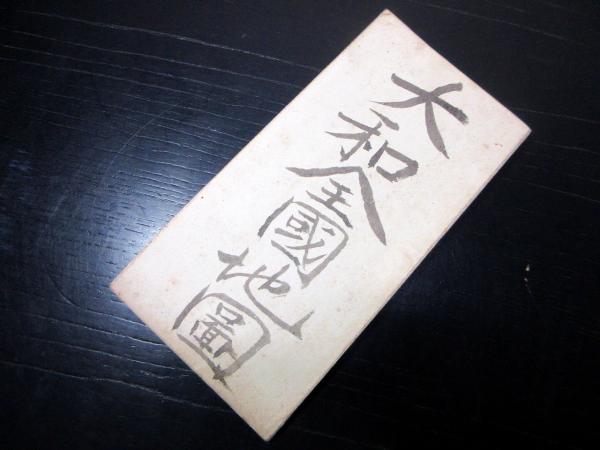 大和全國地圖